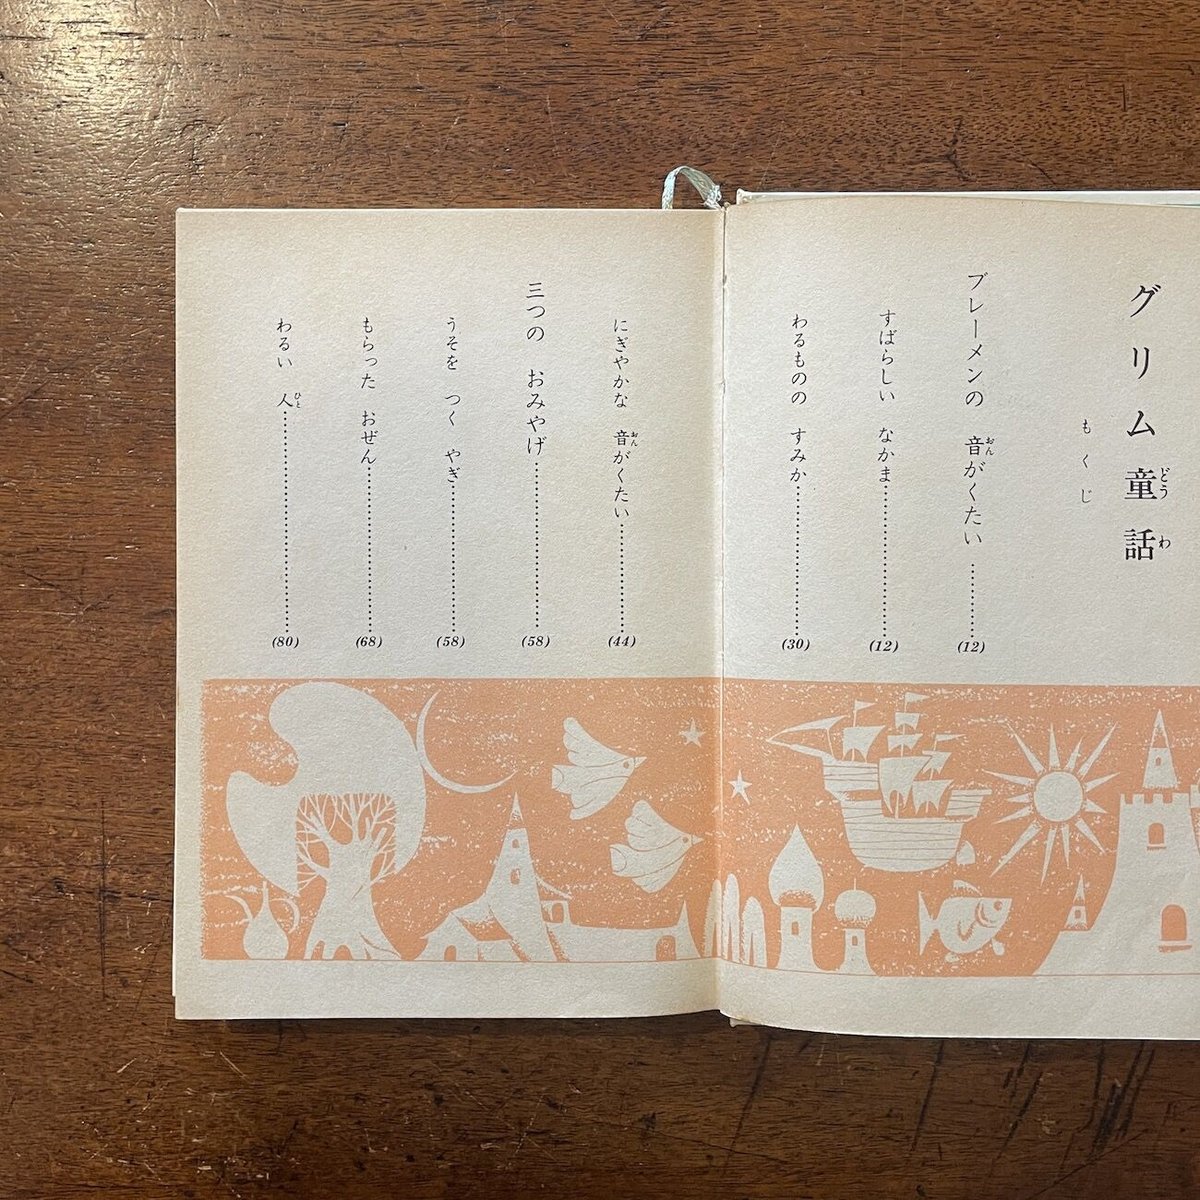 グリム童話
もくじ
ブレーメンの 音がくたい…………(12)
すばらしい なかま…………(12)
わるものの すみか…………(30)
にぎやかな 音がくたい…………(44)
三つの おみやげ…………(58)
うそを つく やぎ…………(58)
もらった おぜん…………(68)
わるい 人…………(80)